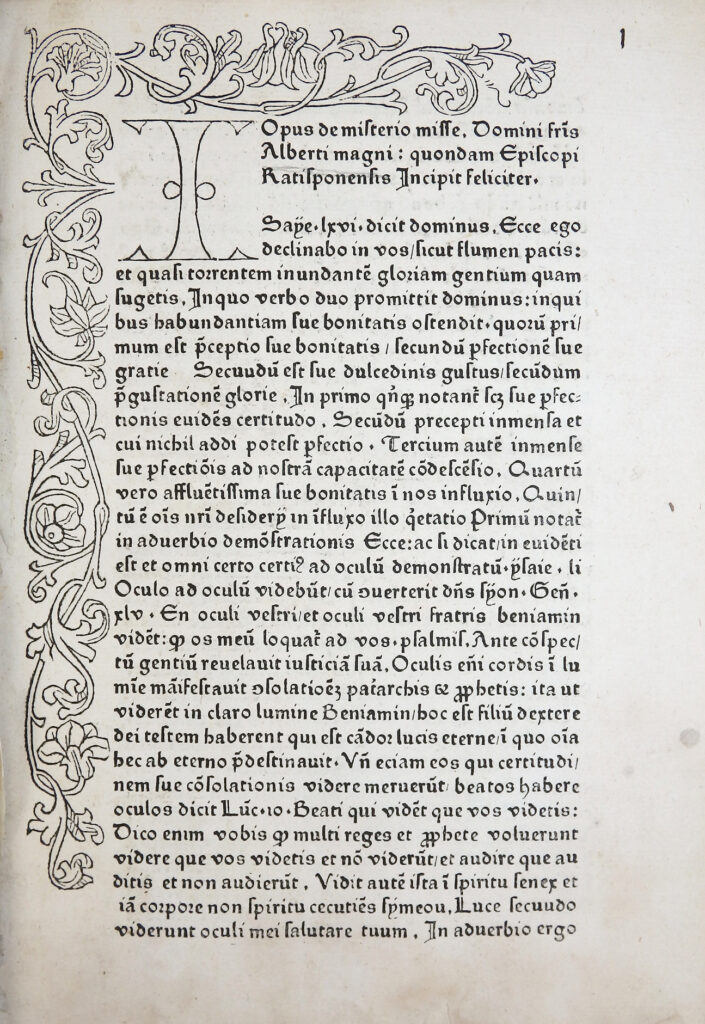 1
Opus de misterio misse. Domini fr̄is
Alberti magni : quondam Episcopi
Ratisponensis Incipit feliciter.
I
Saÿe . lxvi . dicit dominus. Ecce ego
declinabo in vos/sicut flumen pacis:
et quasi torrentem inundantē gloriam gentium quam
sugetis. In quo verbo duo promittit dominus: in qui
bus habundantiam sue bonitatis ostendit. quorū pri/
mum est p̄ceptio sue bonitatis / secundū ꝑfectionē sue
gratie Secuudū est sue dulcedinis gustus/secūdum
p̄gustationē glorie. In primo qn̄qꝫ notant᷑ scꝫ sue ꝑfec-
tionis euidēs certitudo. Secūdū precepti inmensa et
cui nichil addi potest ꝑfectio. Tercium autē inmense
sue ꝑfectiōis ad nostrā capacitatē cōdescēsio. Quartū
vero affluētissima sue bonitatis ī nos influxio. Quin/
tū ē oīs nr̄i desiderÿ in īfluxo illo q̇etatio Primū notat᷑
in aduerbio demōstrationis Ecce: ac si dicat/in euidēti
est et omni certo certiꝰ ad oculū demonstratū. ÿsaie . li
Oculo ad oculū videbūt/cū ꝯuerterit dn̄s sÿon. Gen̄.
xlv . En oculi vestri/et oculi vestri fratris beniamin
vidēt: ꝙ os meū loquat᷑ ad vos. psalmis. Ante cōspec/
tū gentiū reuelauit iusticiā suā. Oculis en̄i cordis ī lu
mīe māifestauit ꝯsolatioēꝫ pat᷑archis & ꝓphetis: ita ut
viderēt in claro lumine Beniamin/hoc est filiū dextere
dei testem haberent qui est cādor lucis eterne/ī quo oīa
hec ab eterno p̄destinauit. Vn̄ eciam eos qui certitudi/
nem sue cōsolationis videre meruerūt/ beatos habere
oculos dicit Lūc. 10. Beati qui vidēt que vos videtis:
Dico enim vobis ꝙ multi reges et ꝓphete voluerunt
videre que vos videtis et nō viderūt/et audire que au
ditis et non audierūt. Vidit autē ista ī spiritu senex et
iā corpore non spiritu cecutiēs sÿmeou. Luce secuudo
viderunt oculi mei salutare tuum. In aduerbio ergo